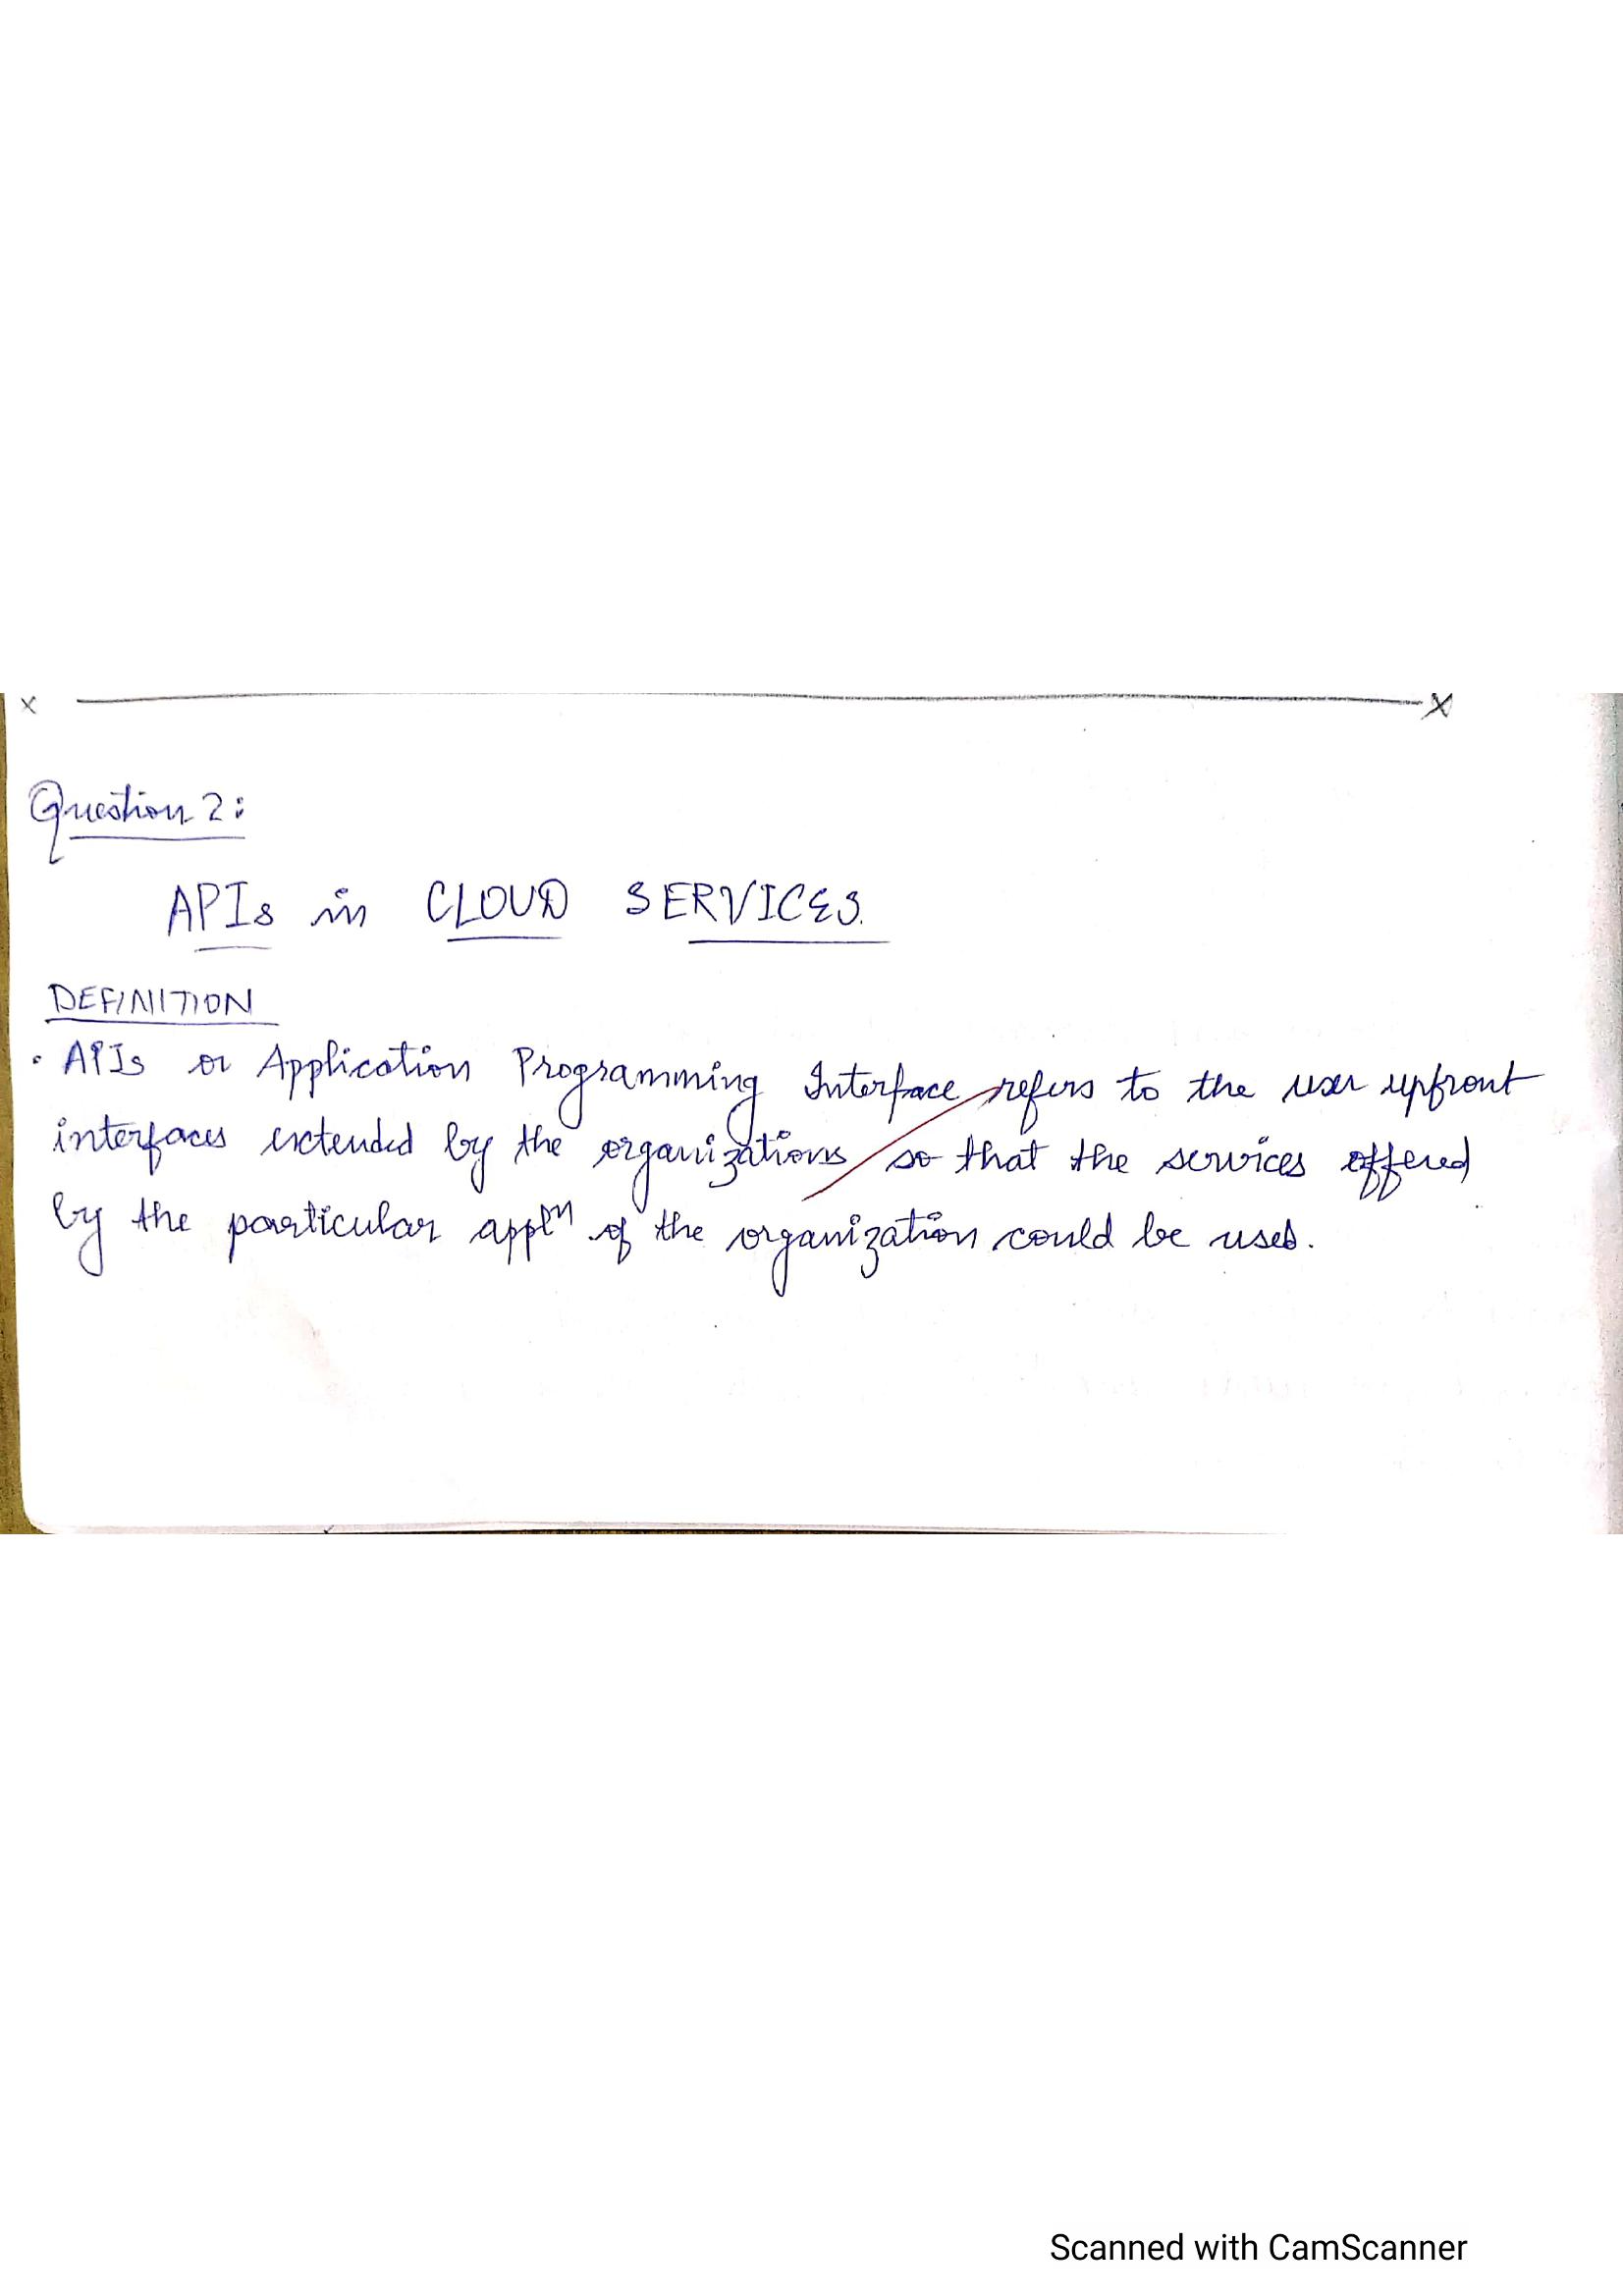 x x
Question 2:
APIs in CLOUD SERVICES.
DEFINITION
• APIs or Application Programming Interface refers to the user upfront
interfaces extended by the organizations so that the services offered
by the particular applⁿ of the organization could be used.
Scanned with CamScanner